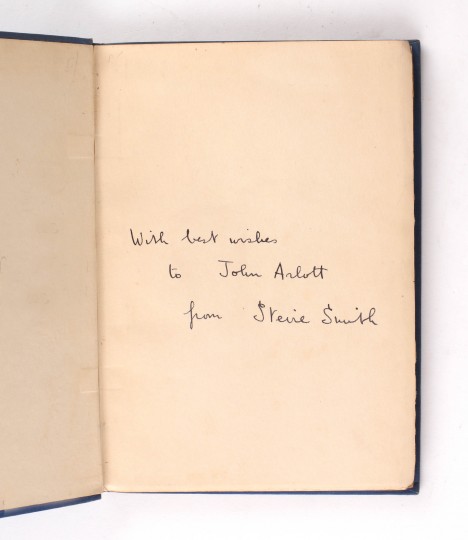 With best wishes
to John Arlott
from Stevie Smith